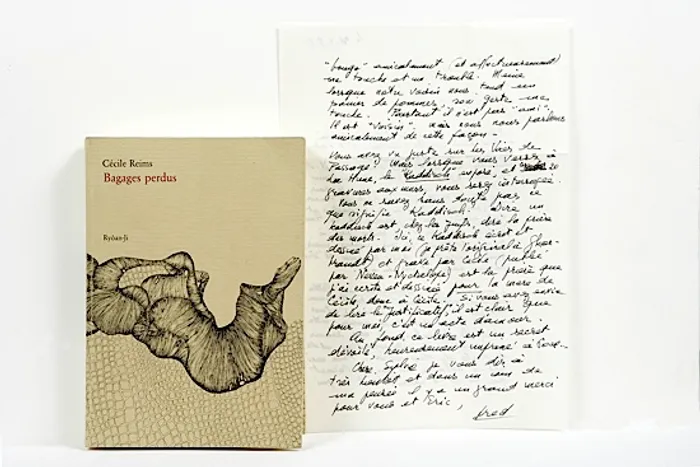 Cécile Reims
Bagages perdus
Ryôan-Ji
"bouge" amicalement (et affectueusement)
me touche et me trouble. Même
lorsque notre voisin nous tend un
panier de pommes, son geste me
touche. Pourtant il n'est pas "ami".
Il est "voisin" mais nous nous parlons
amicalement de cette façon -
Vous avez vu juste sur les Vies de
Passage! Mais lorsque vous verrez à
La Hune, le "Kaddisch" exposé, et 20
gravures aux murs, vous serez
Vous ne savez sans doute pas ce
que signifie Kaddisch. Dire un
kaddisch est chez les juifs, dire la prière
des morts. Ici, ce Kaddisch écrit et
dessiné par moi
et gravé par Cécile (publié
par ) est la prière que
j'ai écrite et dessinée pour la mère de
Cécile, donc à Cécile. Si vous avez envie
de lire le justificatif, il est clair que
pour moi, c'est un acte d'amour.
Au fond, ce livre est un secret
dévoilé, heureusement imprimé à
Chère Sylvie je vous dis à
très bientôt et dans un coin de
ma pensée il y a un grand merci
pour vous et Eric,
Fred